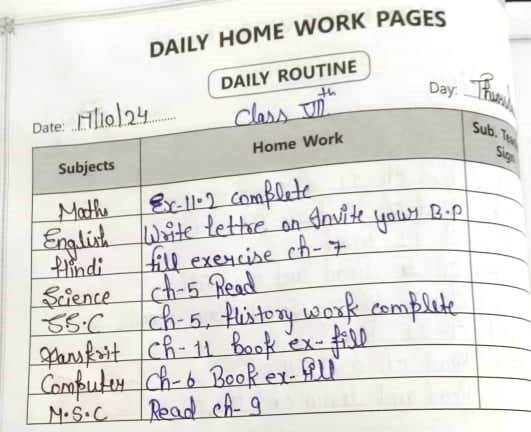 DAILY HOME WORK PAGES
DAILY ROUTINE
Date: 17/10/24 Day:
Class VIIth
Subjects Home Work Sub. Sign
Maths Ex-11.2 complete
English Write lettre on Invite your B.P
Hindi fill exercise ch-7
Science ch-5 Read
SS.C ch-5, History work complete
Sanskrit ch-11 Book ex-fill
Computer Ch-6 Book ex-fill
M.S.C Read ch-9